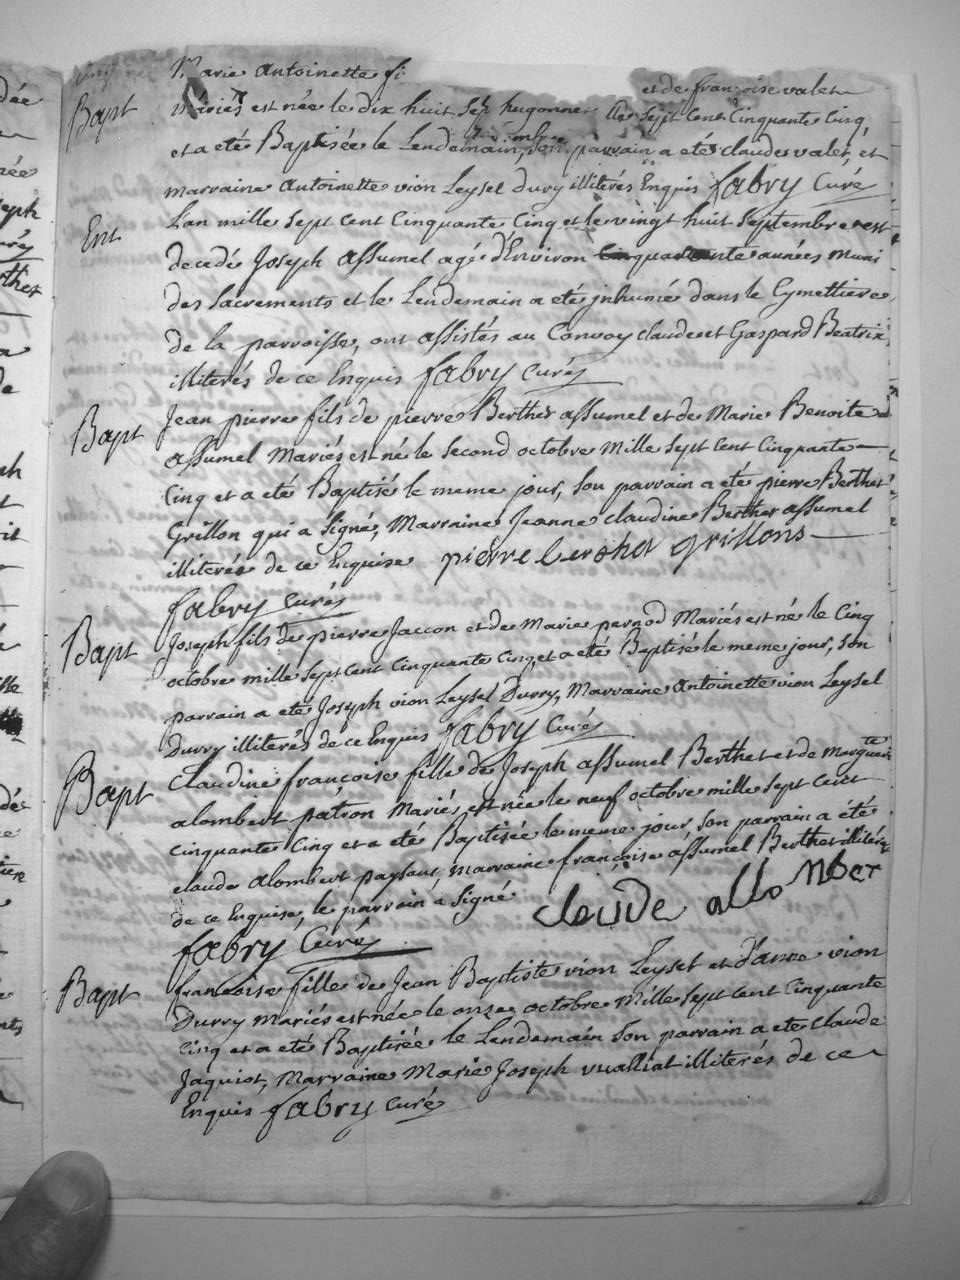 Marie Antoinette fi et de françoise valet
Bapt Mariés est née le dix huit Sept Cent Cinquante Cinq
et a eté Baptisée le Lendemain, Son parrain a eté claude valet, et
marraine Antoinette vion Leysel Dury illiterés Enquis fabry Curé
Ent Lan mille Sept Cent Cinquante Cinq et le vingt huit Septembre est
decedé Joseph Assumel agé d'Environ années muni
des Sacrements et le Lendemain a eté jnhumé dans le Cymettiere
de la parroisse, ont assistés au Convoy claude et Gaspard Beatrix
illiterés de ce Enquis fabry Curé
Bapt Jean pierre fils de pierre Berthet assumel et de Marie Benoite
assumel Mariés est né le Second octobre Mille Sept Cent Cinquante
Cinq et a eté Baptisé le meme jour, Son parrain a eté pierre Berthet
Grillon qui a Signé, Marraine Jeanne claudine Berthet assumel
illiterés de ce Enquise pierre berthet grillons
fabry Curé
Bapt Joseph fils de pierre Jaccon et de Marie pernod Mariés est né le Cinq
octobre mille Sept Cent Cinquante Cinq et a eté Baptisé le meme jour, Son
parrain a eté Joseph vion Leysel Durry, Marraine Antoinette vion Leysel
Durry illiterés de ce Enquis fabry Curé
Bapt Claudine françoise fille de Joseph assumel Berthet et de Margueritte
alombert patron Mariés est née le neuf octobre mille Sept Cent
cinquante Cinq et a eté Baptisée le meme jour, Son parrain a été
claude alombert paysan, marraine françoise assumel Berthet illiterée
de ce Enquise, le parrain a Signé cleude allomber
fabry Curé
Bapt francoise fille de Jean Baptiste vion Leysel et d'anne vion
Durry mariés est née le onze octobre Mille Sept Cent Cinquante
Cinq et a eté Baptisée le Lendemain Son parrain a eté Claude
Jaquiot, Marraine Marie Joseph vualliat illiterés de ce
Enquis fabry Curé